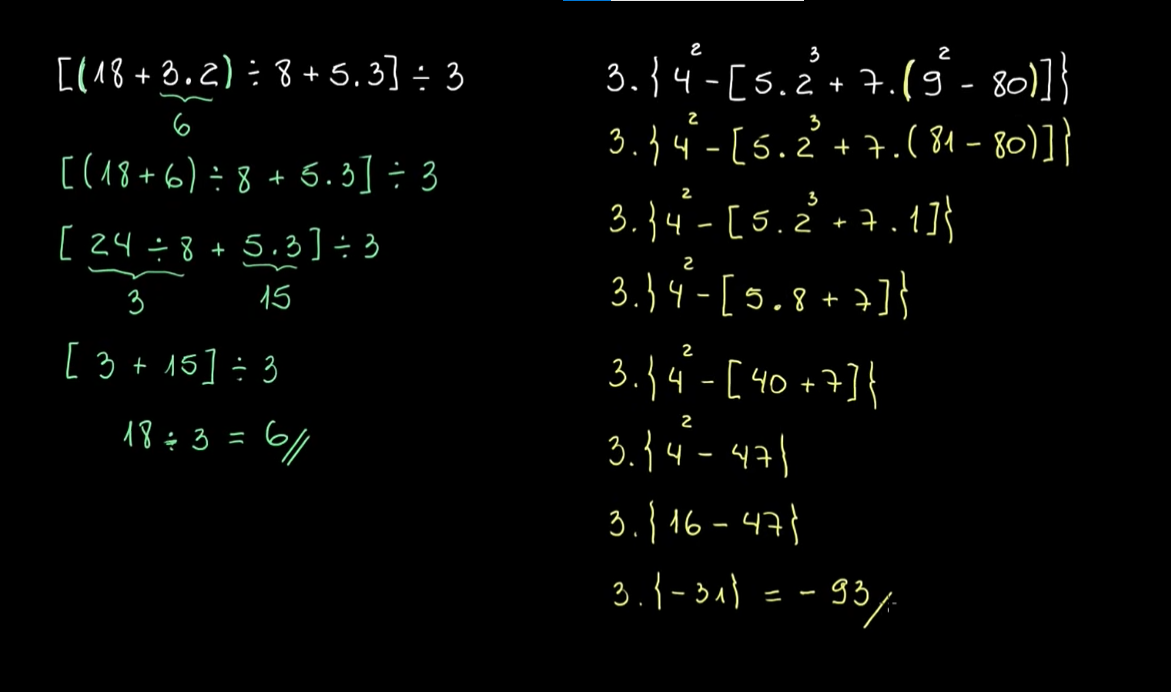 [(18 + 3.2) ÷ 8 + 5.3] ÷ 3
6
[(18 + 6) ÷ 8 + 5.3] ÷ 3
[24 ÷ 8 + 5.3] ÷ 3
3 15
[3 + 15] ÷ 3
18 ÷ 3 = 6//
3.{4² - [5.2³ + 7.(9² - 80)]}
3.{4² - [5.2³ + 7.(81 - 80)]}
3.{4² - [5.2³ + 7.1]}
3.{4² - [5.8 + 7]}
3.{4² - [40 + 7]}
3.{4² - 47}
3.{16 - 47}
3.{-31} = - 93/